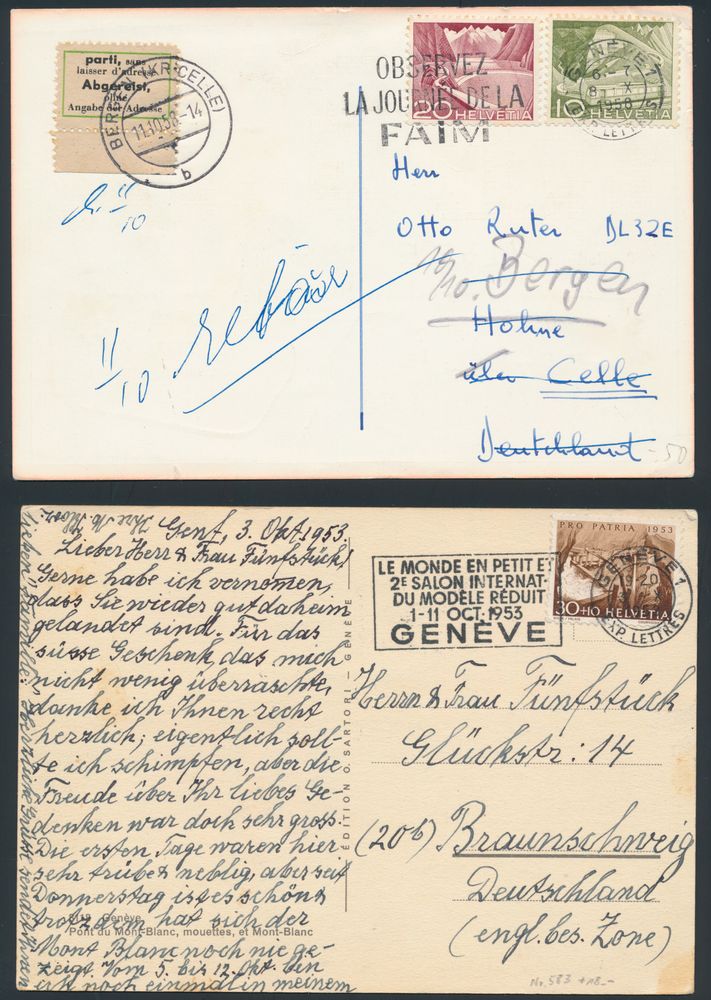 parti, sans
laisser d'adresse
Abgereist,
ohne
Angabe der Adresse
BERGEN (KR. CELLE)
11.10.58.-14
b
OBSERVEZ
LA JOURNEE DE LA
FAIM
20 HELVETIA
10 HELVETIA
GENÈVE 1
1958
EXP. LETTRES
11/10
11/10
Herr
Otto Ruter BL32E
Bergen
Hohne
über Celle
Deutchland
-50
Genf, 3. Okt. 1953.
Lieber Herr & Frau Fünfstück!
Gerne habe ich vernommen,
dass Sie wieder gut daheim
gelandet sind. Für das
süsse Geschenk, das mich
nicht wenig überraschte,
danke ich Ihnen recht
herzlich; eigentlich soll-
te ich schimpfen, aber die
Freude über Ihr liebes Ge-
denken war doch sehr gross.
Die ersten Tage waren hier
sehr trübe & neblig, aber seit
Donnerstag ist es schön &
trotzdem hat sich der
Mont Blanc noch nie ge-
zeigt. Vom 5. bis 12. Okt. bin
ich noch einmal in meinem
Genève
Pont du Mont-Blanc, mouettes, et Mont-Blanc
EDITION O. SARTORI - GENÈVE
LE MONDE EN PETIT ET
2E SALON INTERNAT.
DU MODÈLE RÉDUIT
1-11 OCT. 1953
GENÈVE
PRO PATRIA 1953
30+10 HELVETIA
GENÈVE 1
EXP. LETTRES
Herrn & Frau Fünfstück
Glückstr: 14
(20b) Braunschweig
Deutschland
(engl. bes. Zone)
Nr. 583 +18.-